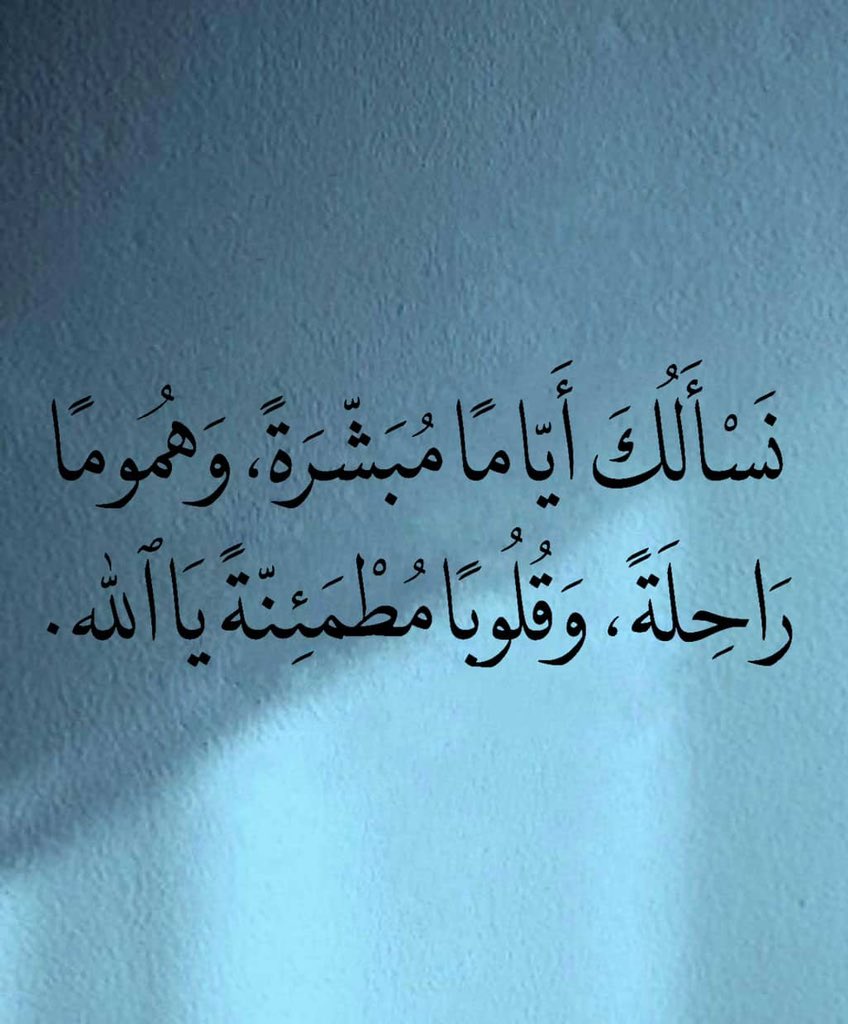 نَسْأَلُكَ أَيّامًا مُبَشّرَةً، وَهُمُومًا
رَاحِلَةً، وَقُلُوبًا مُطْمَئِنّةً يَا ٱلله.